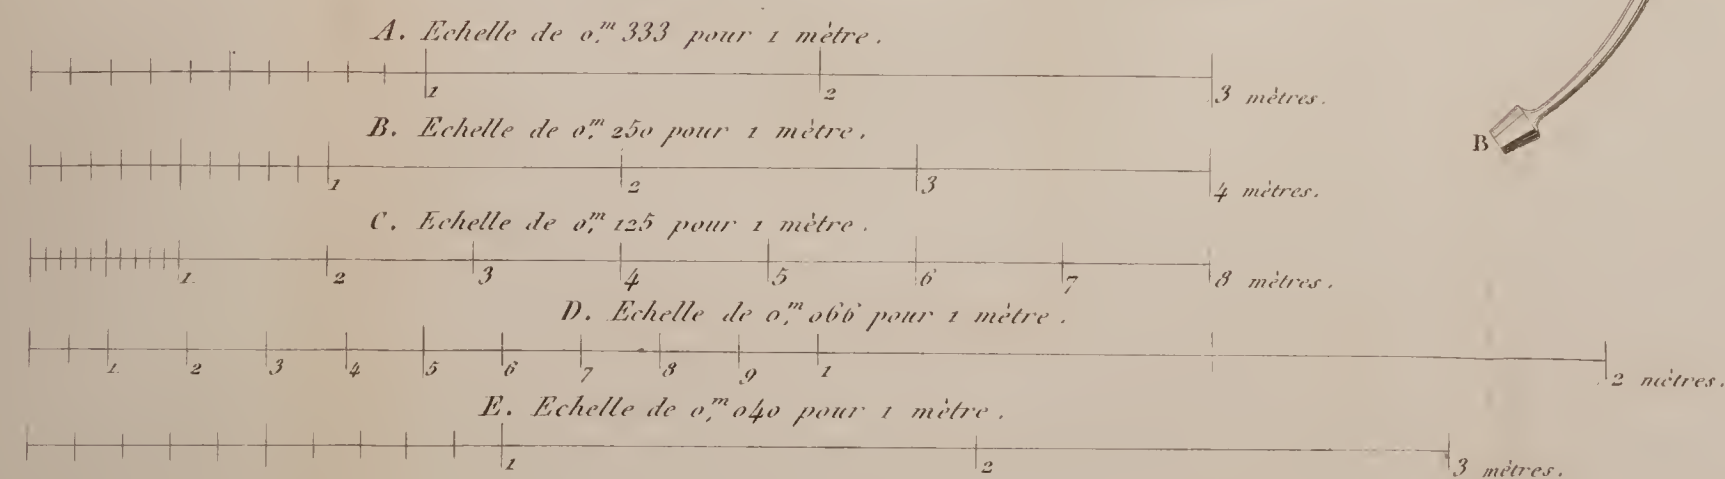 A. Echelle de 0,ᵐ 333 pour 1 mètre.
1 2 3 mètres.
B. Echelle de 0,ᵐ 250 pour 1 mètre.
B
1 2 3 4 mètres.
C. Echelle de 0,ᵐ 125 pour 1 mètre.
1 2 3 4 5 6 7 8 mètres.
D. Echelle de 0,ᵐ 066 pour 1 mètre.
1 2 3 4 5 6 7 8 9 1 2 mètres.
E. Echelle de 0,ᵐ 040 pour 1 mètre.
1 2 3 mètres.